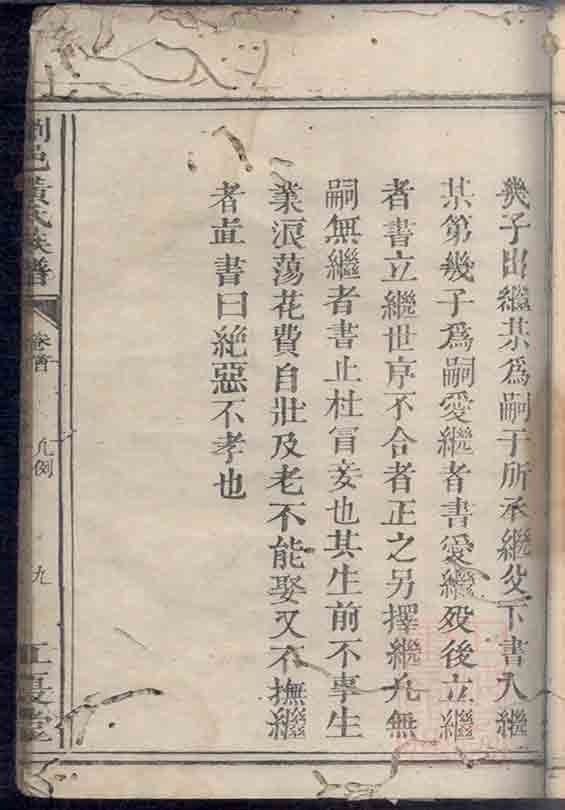 幾子出繼某爲嗣于所承繼父下書入繼
某第幾子爲嗣愛繼者書愛繼歿後立繼
者書立繼世序不合者正之另擇繼凡無
嗣無繼者書止杜冒妄也其生前不事生
業浪蕩花費自壯及老不能娶又不撫繼
者直書曰絶惡不孝也
瀏邑黃氏族譜
卷首
凡例
九
江夏堂